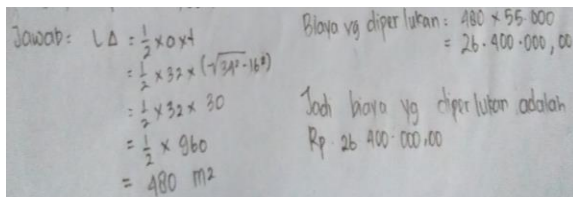 Jawab: L∆ = 1/2 × a × t
= 1/2 × 32 × (√34² - 16²)
= 1/2 × 32 × 30
= 1/2 × 960
= 480 m2
Biaya yg diperlukan : 480 × 55.000
= 26.400.000,00
Jadi biaya yg diperlukan adalah
Rp. 26 400.000,00